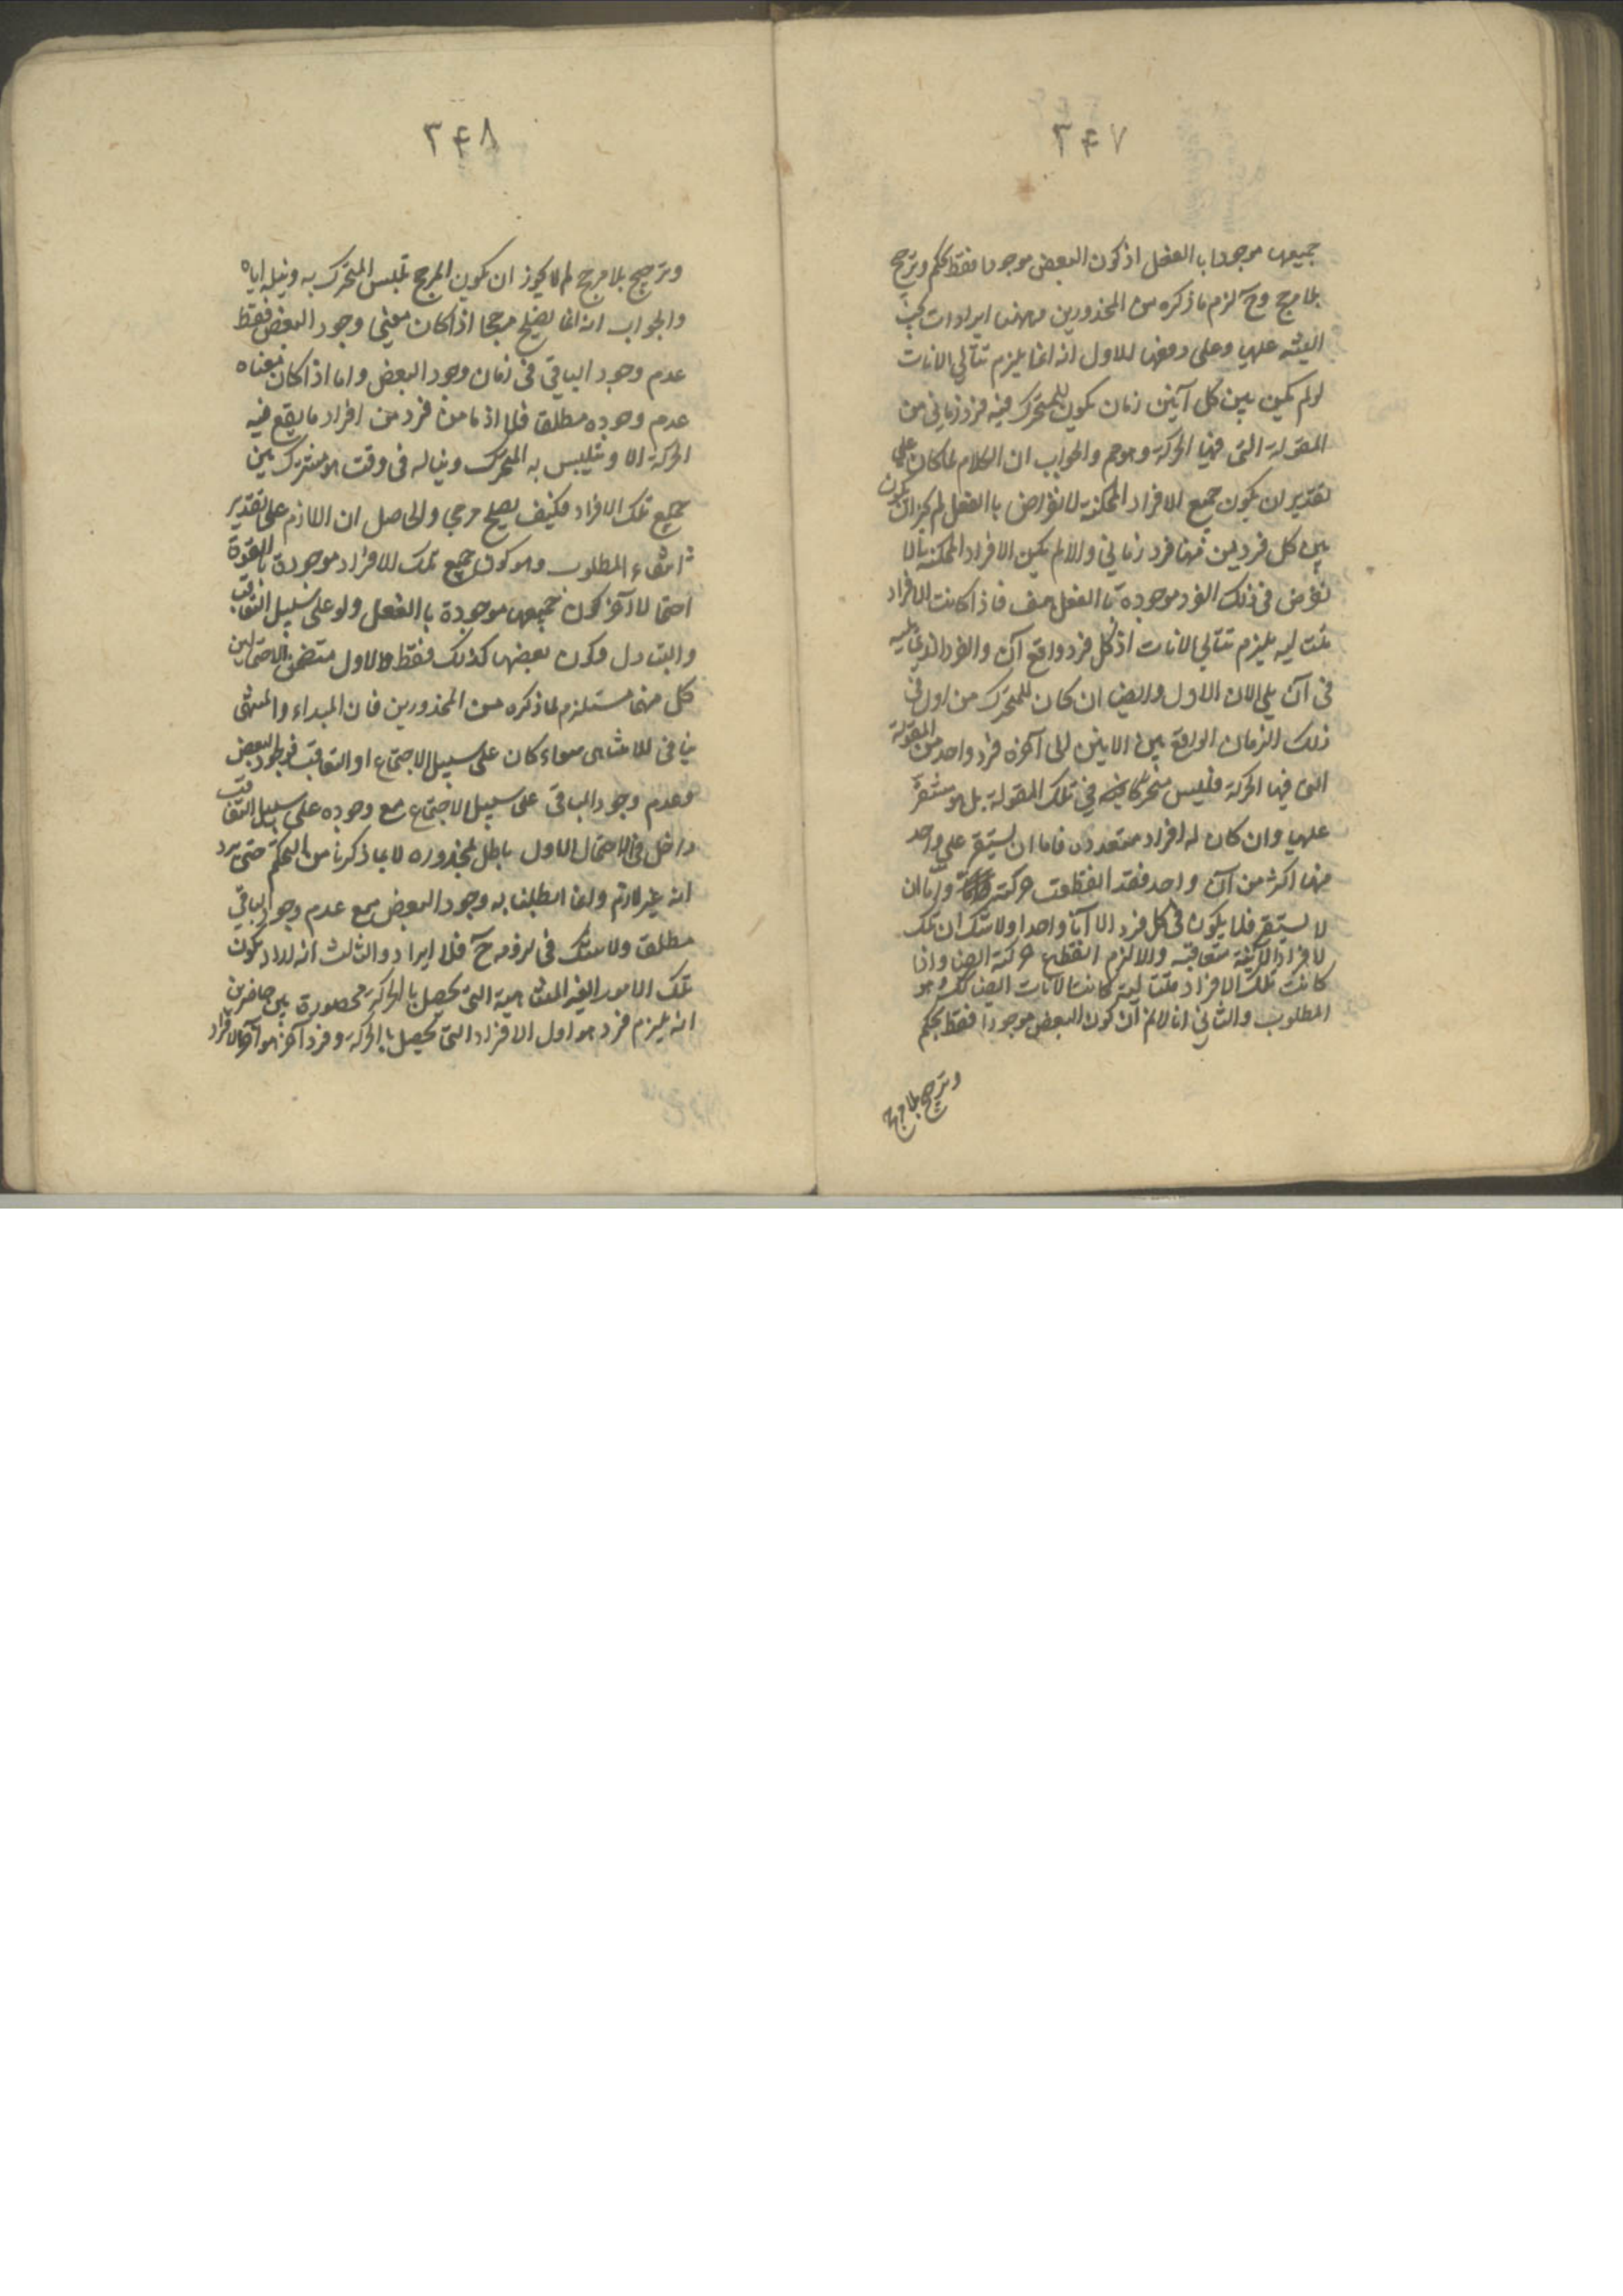 ٢٤٧
جميعها موجودا بالفعل اذ كون البعض موجودا فقط تحكم وترجيح
بلا مرجح وح لزم ما ذكره من المحذورين وههنا ايرادات يجب
التنبيه عليها وعلى دفعها الاول انه انما يلزم تتالي الانات
لو لم يكن بين كل آنين زمان يكون للمتحرك فيه فرد زماني من
المقولة التي فيها الحركة وهو مم والجواب ان الكلام لما كان على
تقدير ان يكون جميع الافراد الممكنة الانفراض بالفعل لم يجز ان يكون
بين كل فردين منها فرد زماني والا لم يكن الافراد الممكنة
في ذلك الفرد موجودة بالفعل هف فاذا كانت الافراد
متتالية يلزم تتالي الانات اذ كل فرد واقع آن والفرد الذي يليه
في آن يلي الان الاول وايضا ان كان للمتحرك من اول في
ذلك الزمان الواقع بين الانين الى آخره فرد واحد من المقولة
التي فيها الحركة فليس متحركا في تلك المقولة بل هو مستقر
عليها وان كان له افراد متعددة فاما ان يستقر على واحد
منها اكثر من آن واحد فقد انقطعت حركته واما ان
لا يستقر فلا يكون في كل فرد الا آنا واحدا ولا شك ان تلك
الافراد الآنية متعاقبة والا لزم انقطاع حركته ايضا واذا
كانت تلك الافراد متتالية كانت الآنات ايضا كك وهو
المطلوب والثاني انا لا نم ان كون البعض موجودا فقط تحكم
وترجيح بلا مرجح
٢٤٨
وترجيح بلا مرجح لم لا يجوز ان يكون المرجح تلبس المتحرك به ونيله اياه
والجواب انه انما يصلح مرجحا اذا كان معنى وجود البعض فقط
عدم وجود الباقي في زمان وجود البعض واما اذا كان معناه
عدم وجوده مطلقا فلا اذ ما من فرد من افراد ما يقع فيه
الحركة الا ويتلبس به المتحرك ويناله في وقت هو مشترك بين
جميع تلك الافراد فكيف يصلح مرجحا والحاصل ان اللازم على تقدير
انتفاء المطلوب وهو كون جميع تلك الافراد موجودة بالقوة
احتمالا آخر كون جميعها موجودة بالفعل ولو على سبيل التعاقب
والتبادل وكون بعضها كذلك فقط والاول متضمن الاحتمالين
كل منهما مستلزم لما ذكره من المحذورين فان المبداء والمنتهى
ينافي اللاتناهي سواء كان على سبيل الاجتماع او التعاقب فوجود البعض
وعدم وجود الباقي على سبيل الاجتماع مع وجوده على سبيل التعاقب
داخل في الاحتمال الاول باطل بمحذوره لا بما ذكرنا من التحكم حتى يرد
انه غير لازم وانما ابطلنا به وجود البعض مع عدم وجود الباقي
مطلقا ولا شك في لزومه ح فلا ايراد والثالث انه اراد بكون
تلك الامور الغير المتناهية التي تحصل بالحركة محصورة بين حاصرين
انه يلزم فرد هو اول الافراد التي تحصل بالحركة وفرد آخر هو آخر الافراد